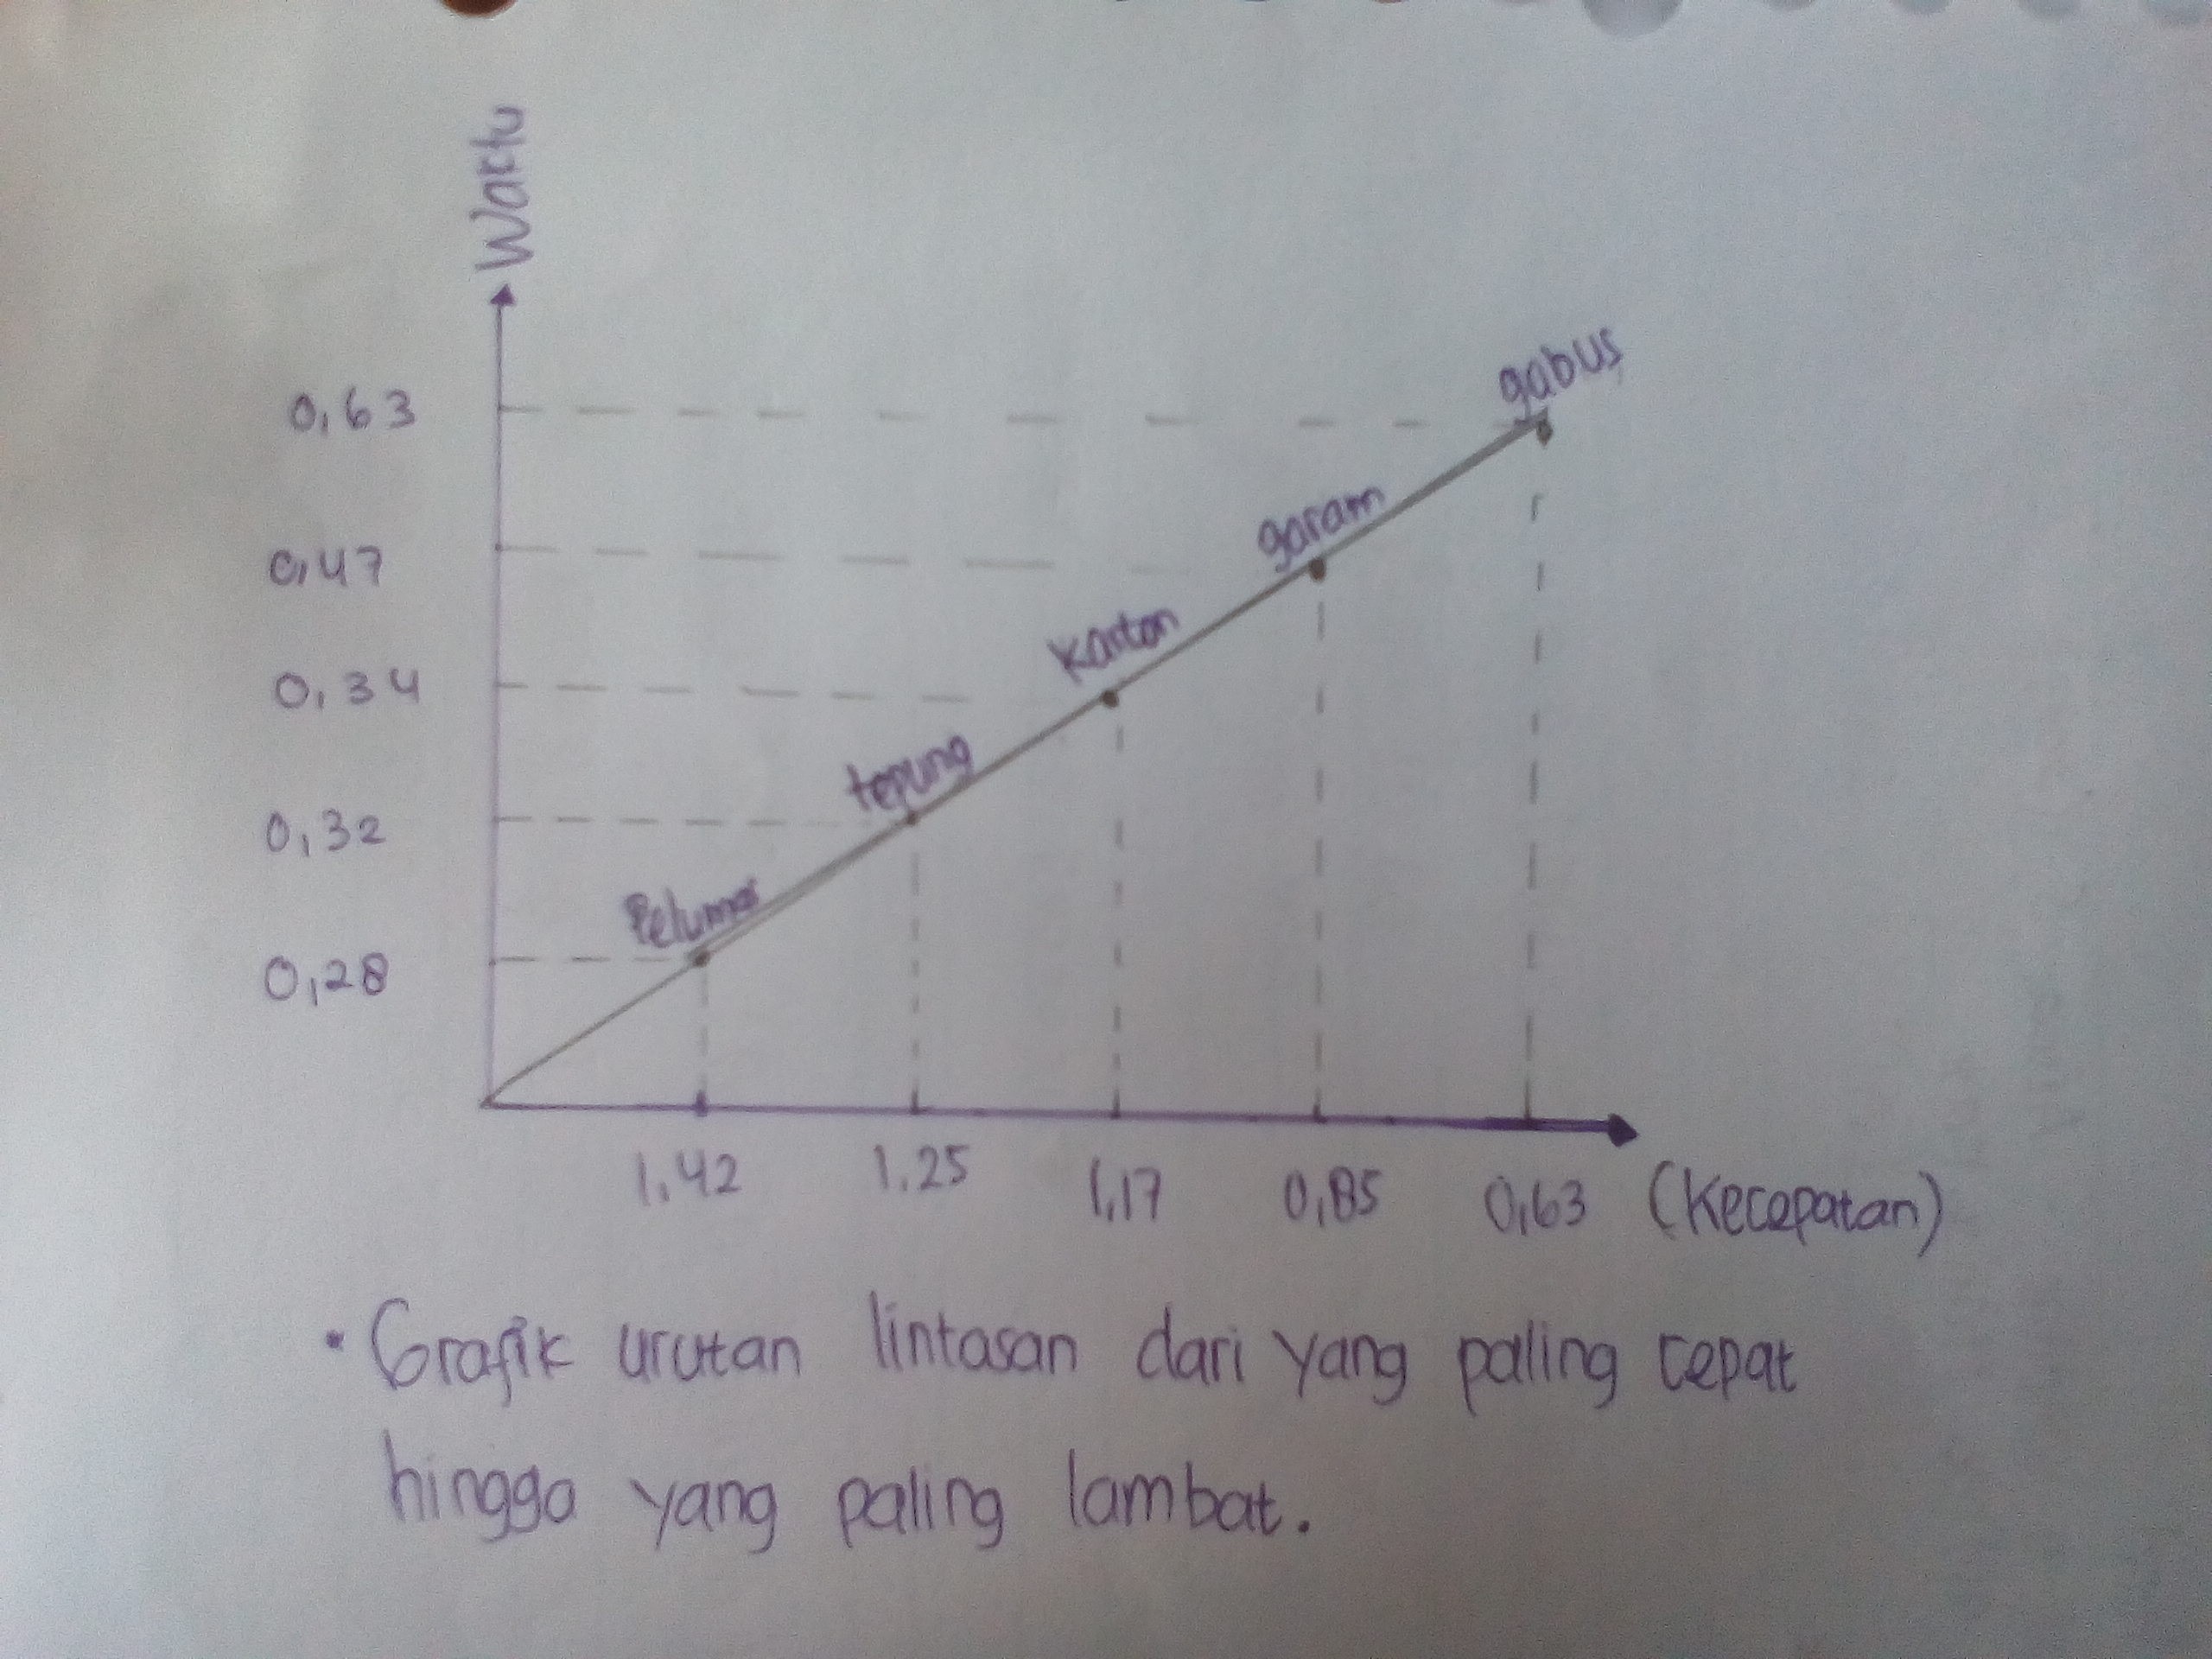 Waktu
0,63
0,47
0,34
0,32
0,28
gabus
garam
Karton
tepung
Pelumas
1,42 1.25 1,17 0,85 0,63 (Kecepatan)
• Grafik urutan lintasan dari yang paling cepat
hingga yang paling lambat.